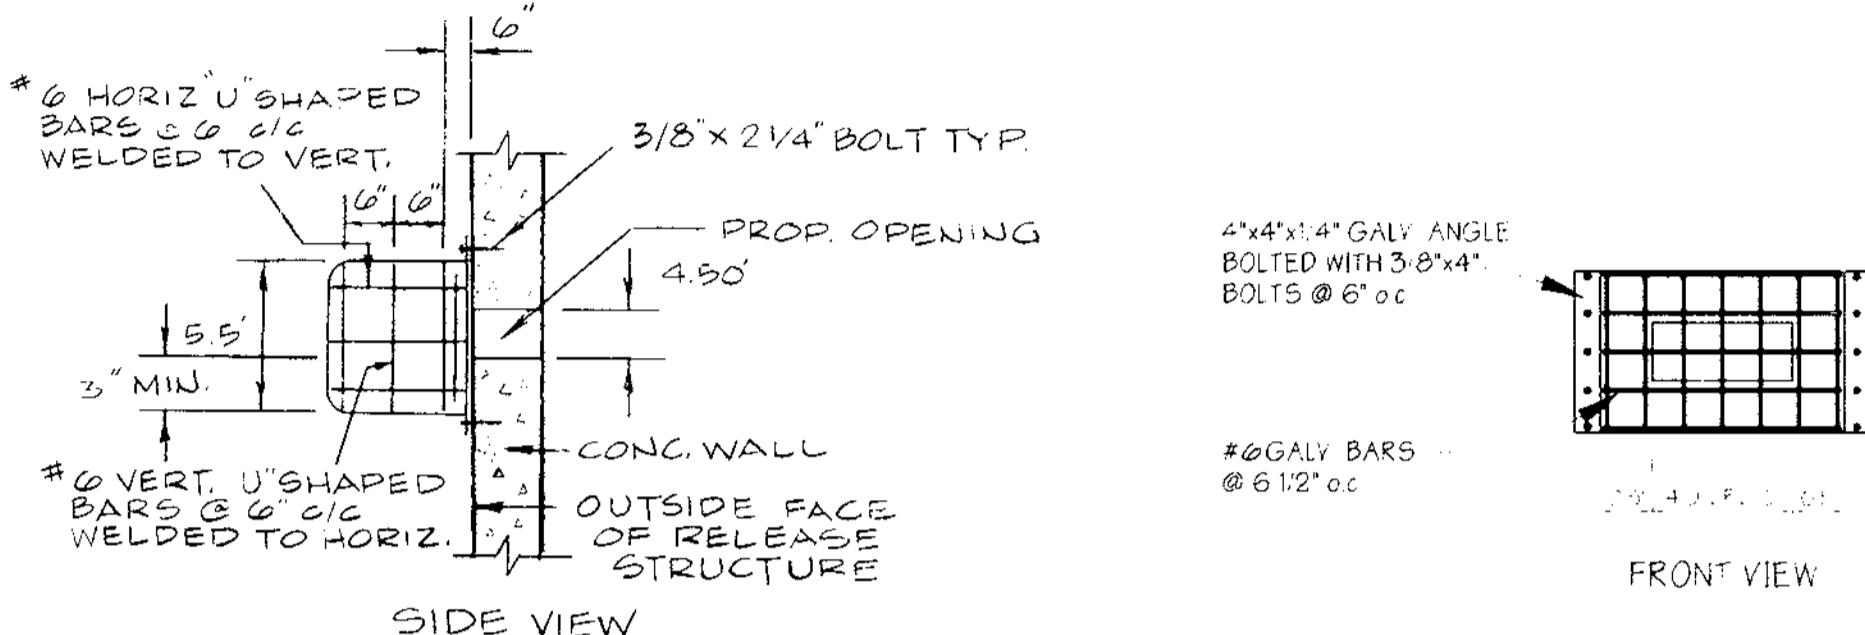 6"
# 6 HORIZ "U" SHAPED
BARS @ 6 c/c
WELDED TO VERT.
3/8" X 2 1/4" BOLT TYP.
6" 6"
PROP. OPENING
4.50'
5.5'
3" MIN.
CONC. WALL
# 6 VERT. U" SHAPED
BARS @ 6" c/c
WELDED TO HORIZ.
OUTSIDE FACE
OF RELEASE
STRUCTURE
SIDE VIEW
4"x4"x1/4" GALV ANGLE
BOLTED WITH 3/8"x4"
BOLTS @ 6" o c
#6 GALV BARS
@ 6 1/2" o.c
FRONT VIEW